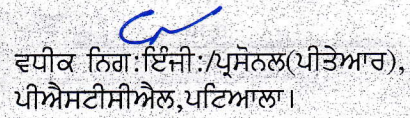 ਵਧੀਕ ਨਿਗ:ਇੰਜੀ:/ਪ੍ਰਸੋਨਲ(ਪੀਤੇਆਰ),
ਪੀਐਸਟੀਸੀਐਲ,ਪਟਿਆਲਾ।